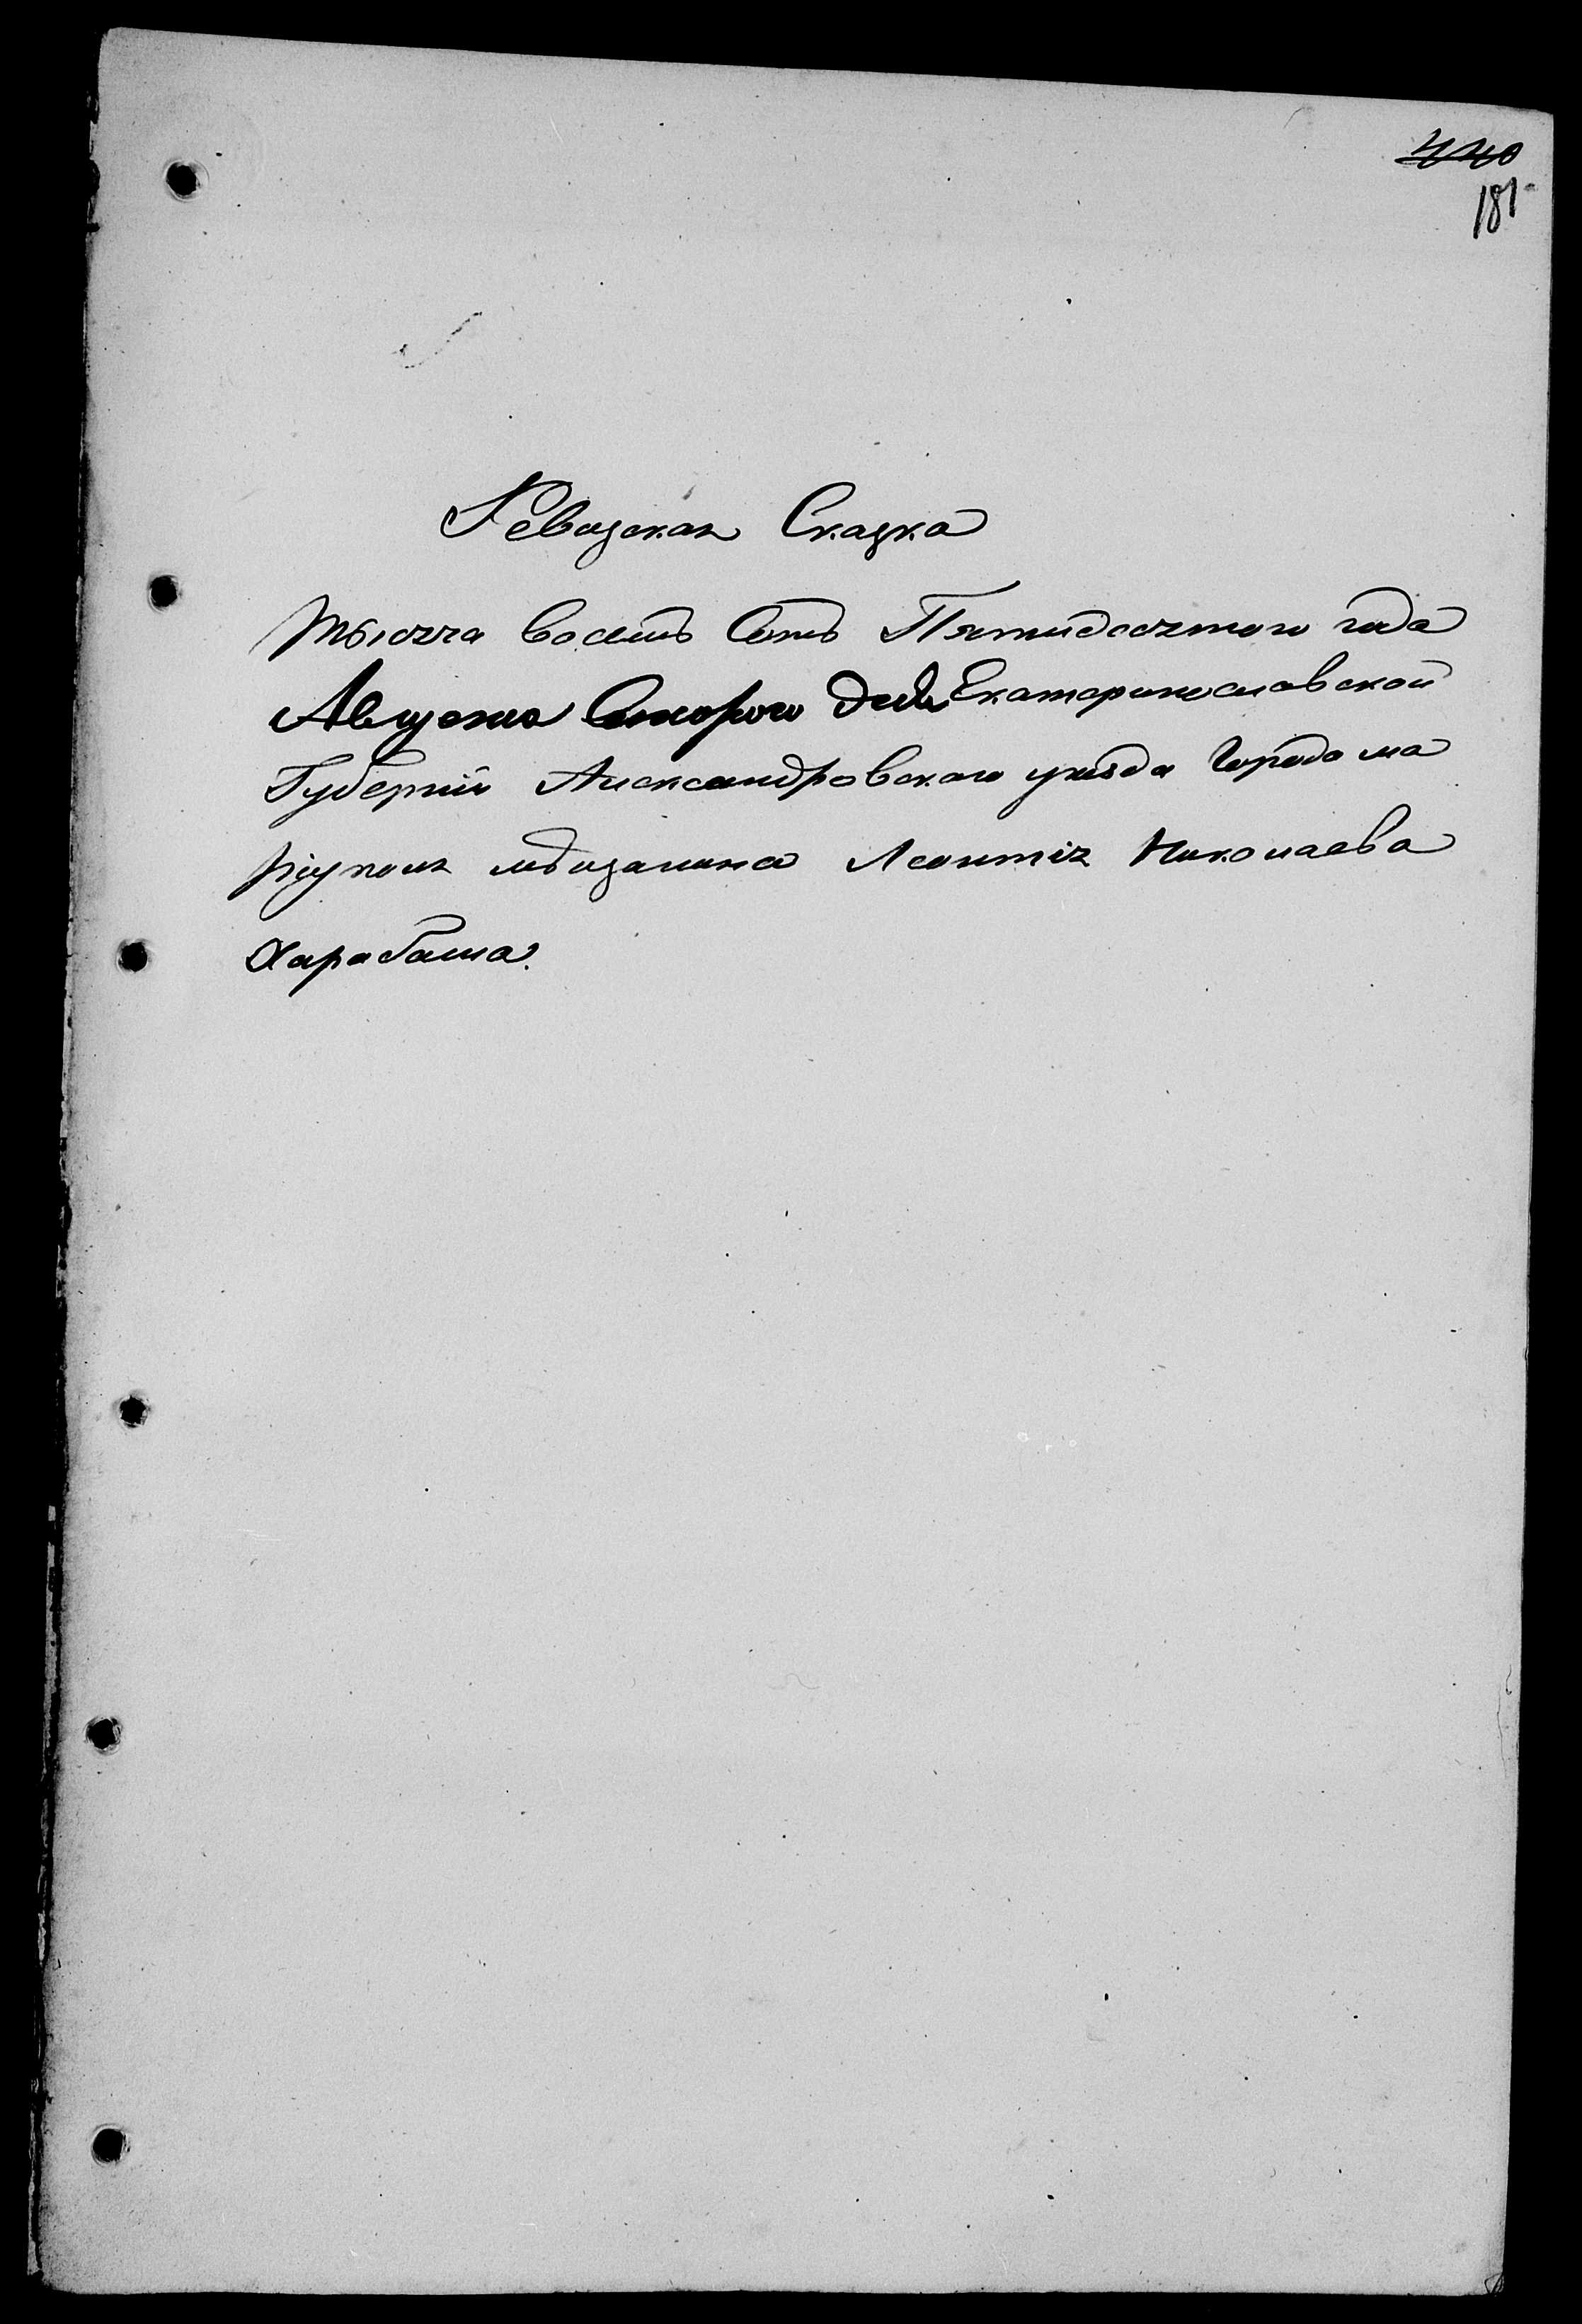 440
181
Ревизская Сказка
Тысяча восемь Сотъ Пятидесятого года
Августа дня Екатеринославской
Губернии Александровского уезда Города Ма
риуполя мещанина Леонтия Николаева
Харабаша.